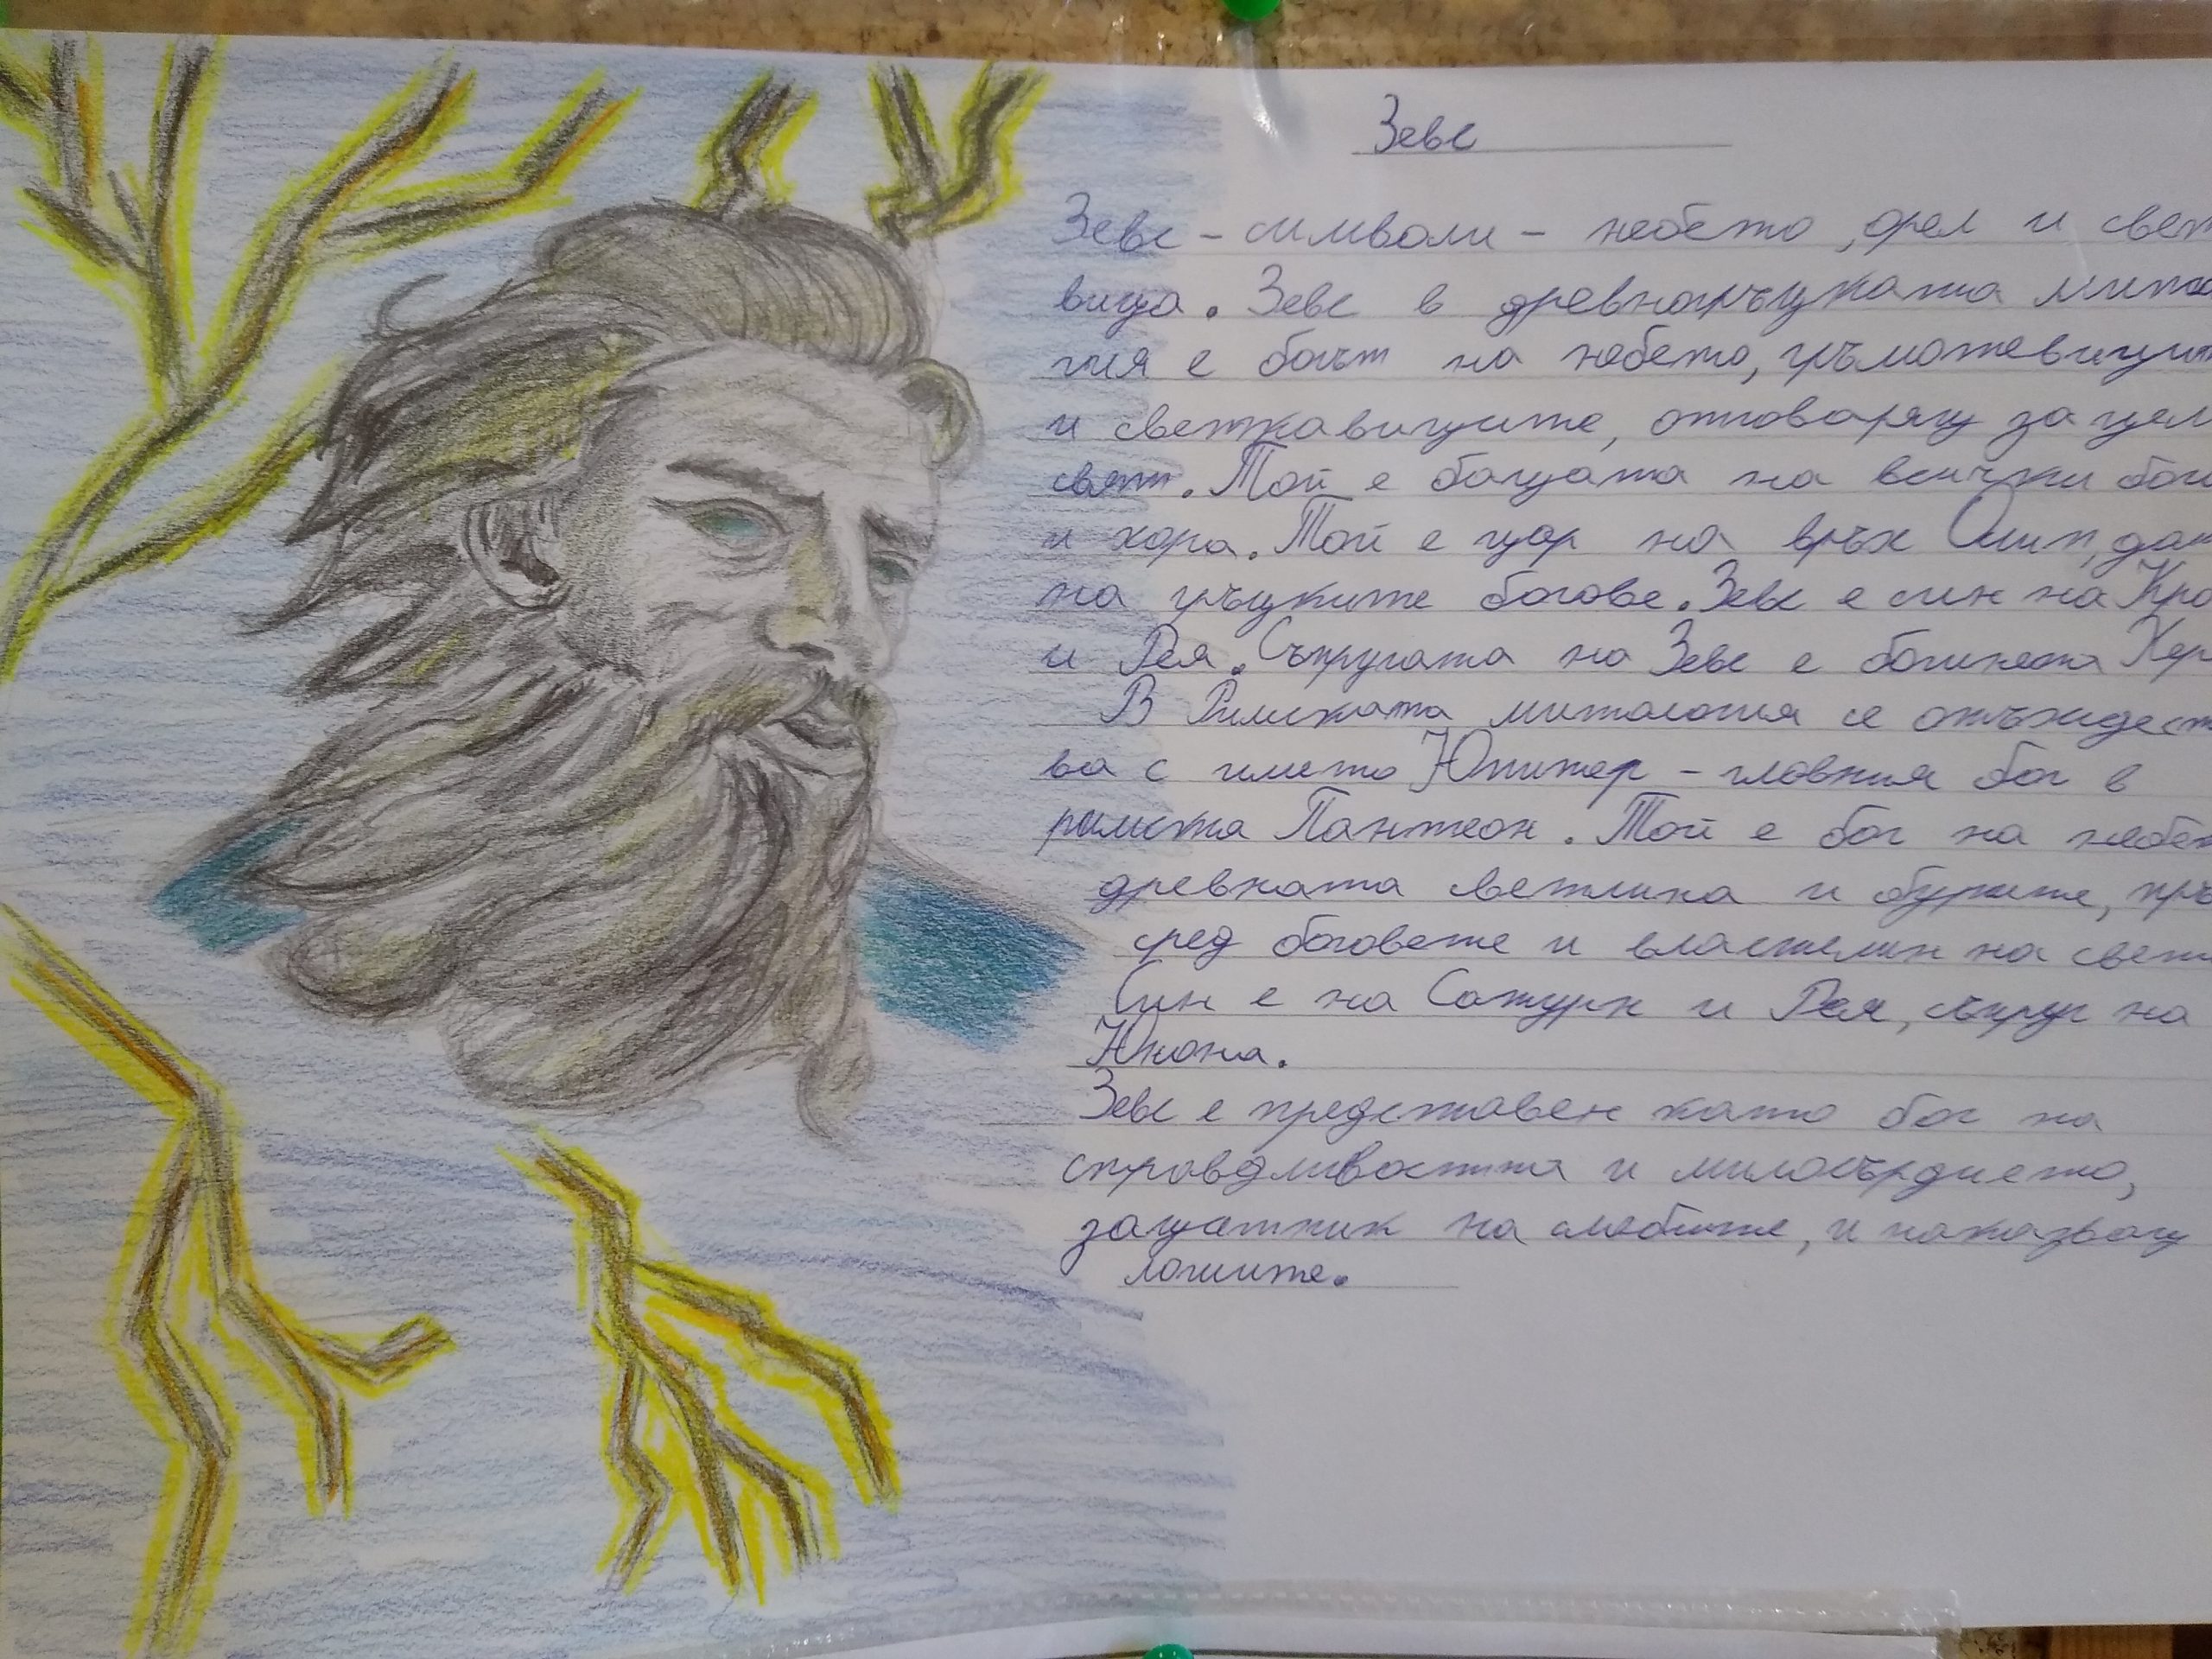 Зевс
Зевс - символи - небето, орел и свет
вица. Зевс в древногръцката мито
гия е богът на небето, гръмотевицит
и светкавиците, отговарящ за цел
свят. Той е бащата на всички бог
и хора. Той е цар на връх Олимп, дом
на гръцките богове. Зевс е син на Кро
и Рея. Съпругата на Зевс е богинята Хер
В Римската митология се отъждест
ва с името Юпитер - главния бог в
римския Пантеон. Той е бог на небет
древната светлина и бурите, пръ
сред боговете и властелин на свет
Син е на Сатурн и Рея, съпруг на
Юнона.
Зевс е представен като бог на
справедливостта и милосърдието,
защитник на слабите, и наказващ
лошите.